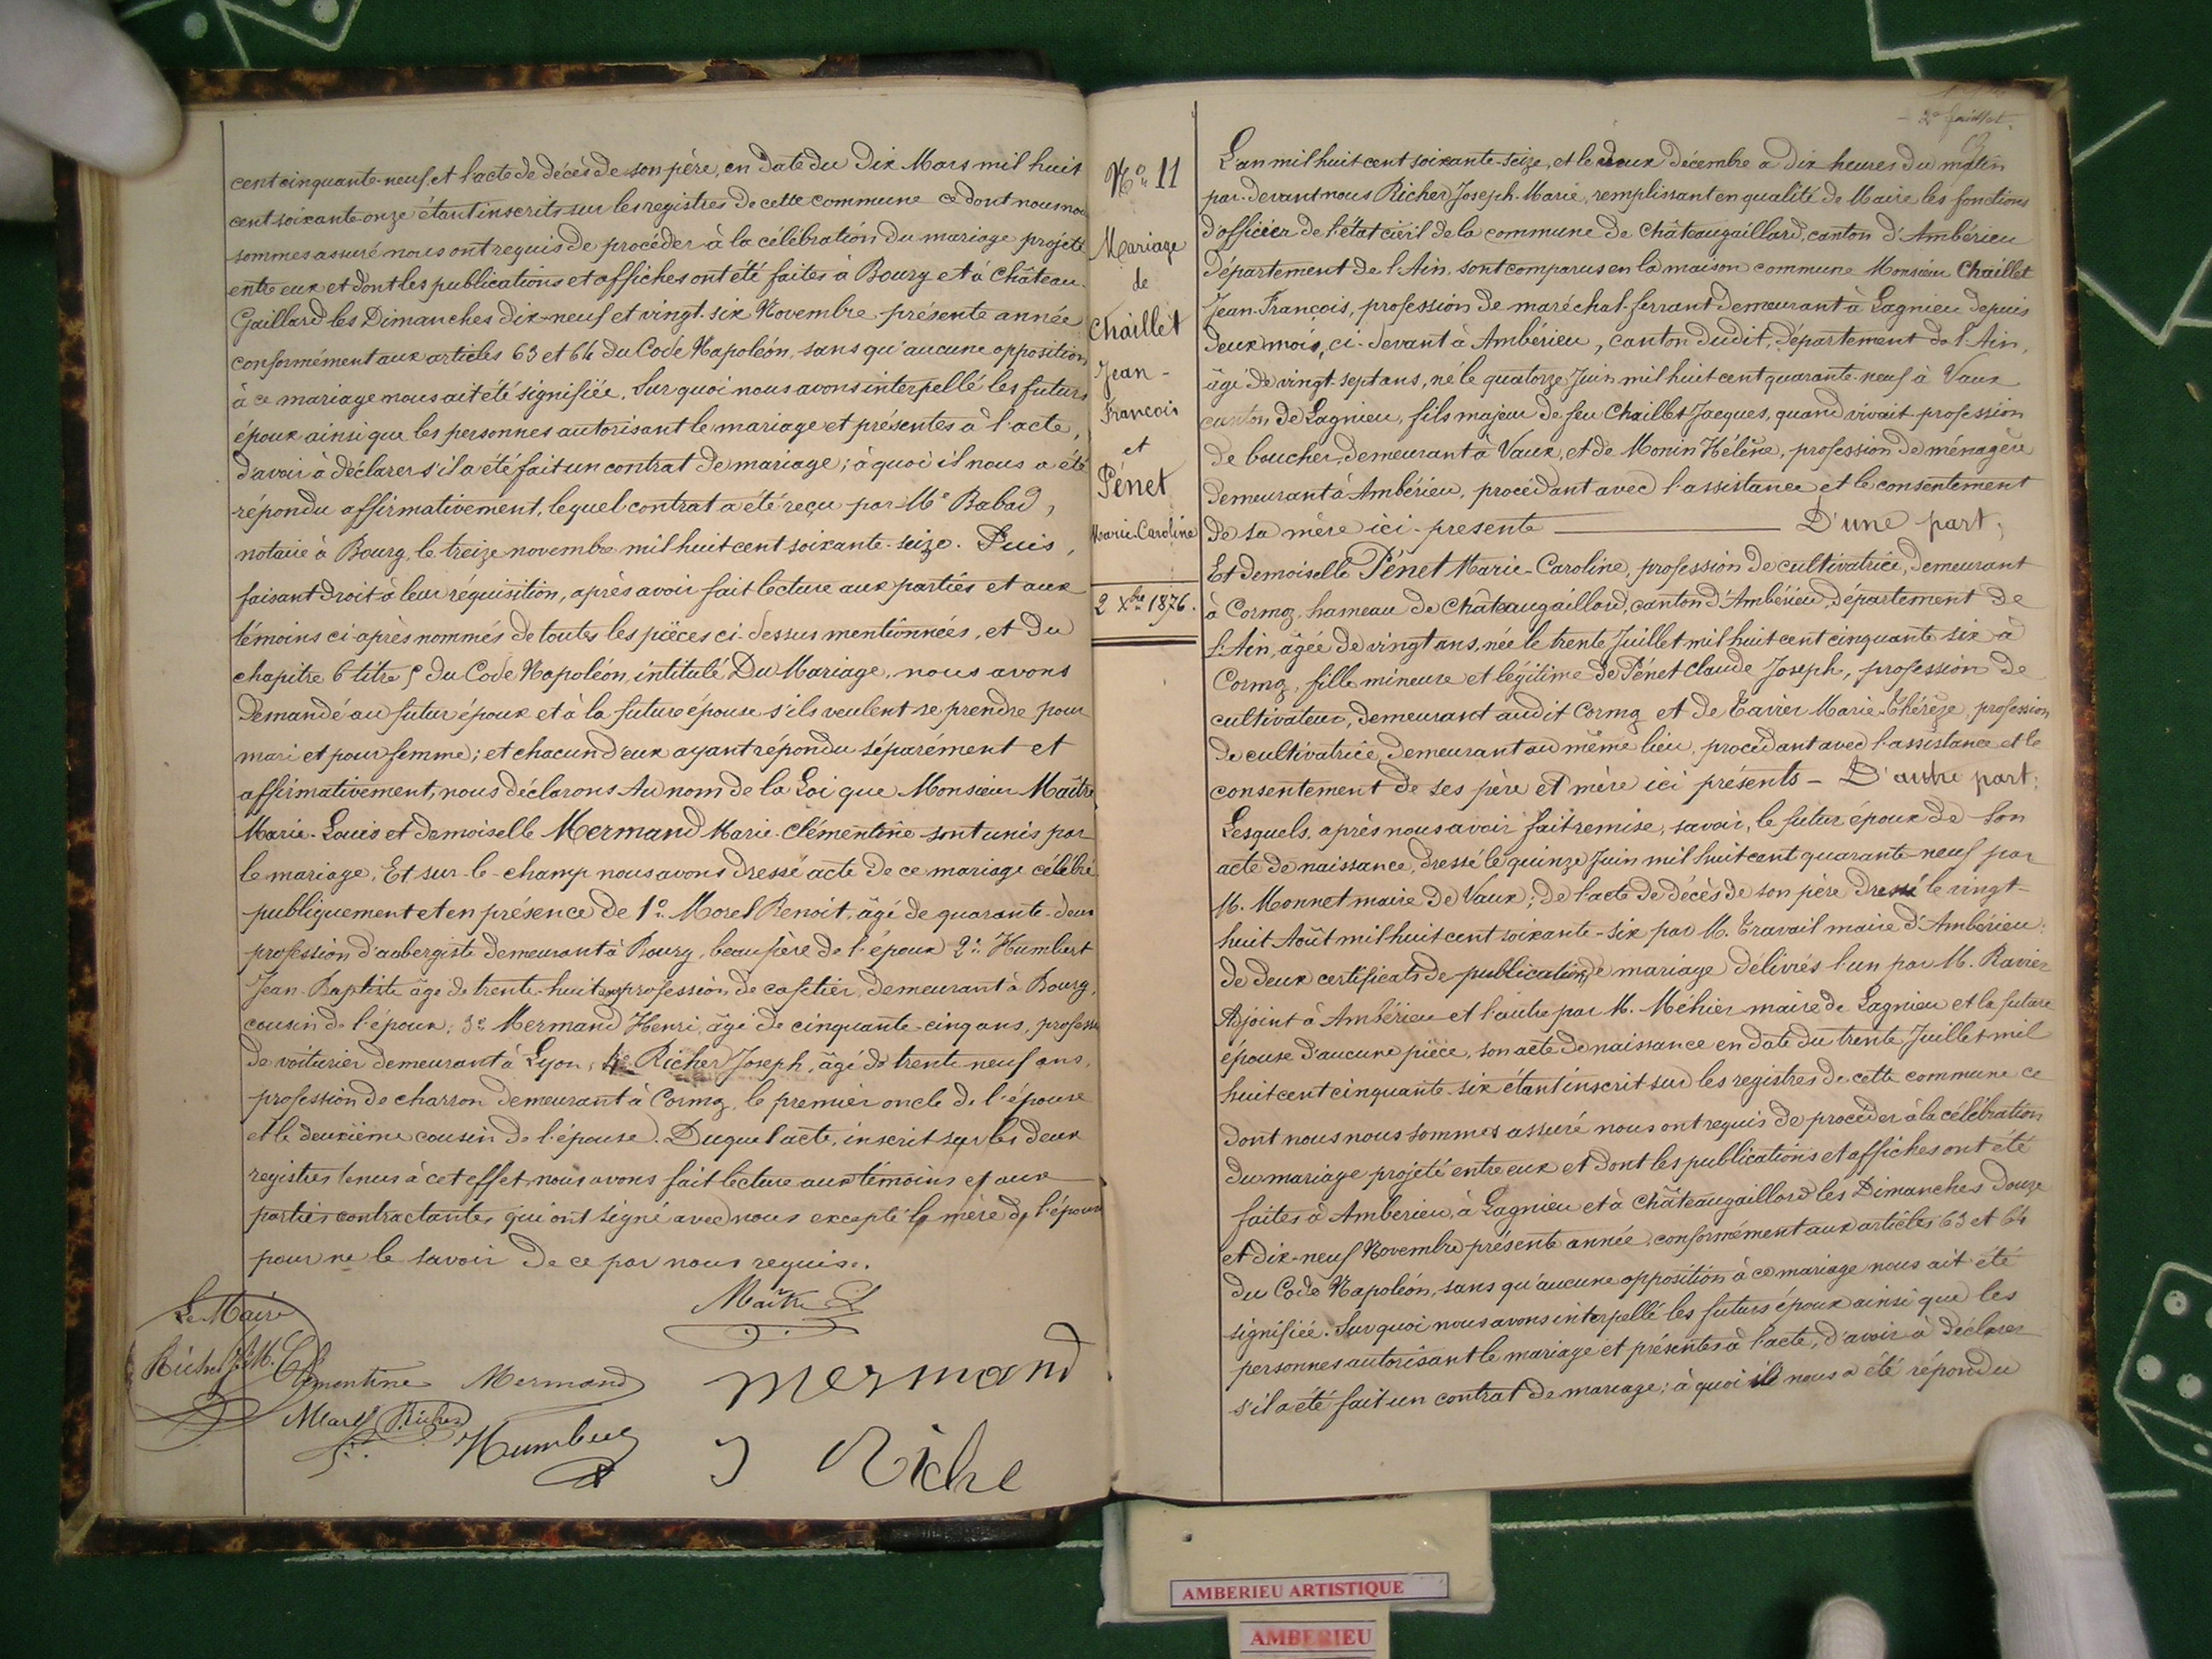 cent cinquante-neuf, et l'acte de décès de son père, en date du dix Mars mil huit
cent soixante-onze étant inscrits sur les registres de cette commune ce dont nous nous
sommes assuré nous ont requis de procéder à la célébration du mariage projeté
entre eux et dont les publications et affiches ont été faites à Bourg et à Château-
Gaillard les Dimanches dix-neuf et vingt-six Novembre présente année
conformément aux articles 63 et 64 du Code Napoléon, sans qu'aucune opposition
à ce mariage nous ait été signifiée. Sur quoi nous avons interpellé les futurs
époux ainsi que les personnes autorisant le mariage et présentes à l'acte,
d'avoir à déclarer s'il a été fait un contrat de mariage; à quoi il nous a été
répondu affirmativement, lequel contrat a été reçu par Me Babad,
notaire à Bourg, le treize novembre mil huit cent soixante-seize. Puis,
faisant droit à leur réquisition, après avoir fait lecture aux parties et aux
témoins ci-après nommés de toutes les pièces ci-dessus mentionnées, et du
chapitre 6 titre 5 du Code Napoléon, intitulé Du Mariage, nous avons
demandé au futur époux et à la future épouse s'ils veulent se prendre pour
mari et pour femme; et chacun d'eux ayant répondu séparément et
affirmativement, nous déclarons Au nom de la Loi que Monsieur Maître
Marie-Louis et demoiselle Mermand Marie-Clémentine sont unis par
le mariage. Et sur-le-champ nous avons dressé acte de ce mariage célébré
publiquement et en présence de 1o Morel Benoit, âgé de quarante-deux
profession d'aubergiste demeurant à Bourg, beau père de l'époux 2o Humbert
Jean-Baptiste âge de trente-huit ans profession de cafetier, demeurant à Bourg,
cousin de l'époux; 3o Mermand Henri, âgé de cinquante-cinq ans, profession
de voiturier demeurant à Lyon; 4o Richer Joseph, âgé de trente neuf ans,
profession de charron demeurant à Cormoz, le premier oncle de l'épouse
et le deuxième cousin de l'épouse. Duquel acte, inscrit sur les deux
registres tenus à cet effet, nous avons fait lecture aux témoins et aux
parties contractantes qui ont signé avec nous excepté la mère de l'époux
pour ne le savoir de ce par nous requise.
Le Maire
Maître L
Richer J. M.
Clémentine Mermand
mermand
Humbert
J Riche
2e feuillet.
No 11
Mariage
de
Chaillet
Jean-
François
et
Pénet
Marie-Caroline
2 Xbre 1876.
L'an mil huit cent soixante-seize, et le deux décembre à dix heures du matin
par-devant nous Richer Joseph-Marie, remplissant en qualité de Maire les fonctions
d'officier de l'état civil de la commune de Châteaugaillard, canton d'Ambérieu
Département de l'Ain, sont comparus en la maison commune Monsieur Chaillet
Jean-François, profession de maréchal-ferrant demeurant à Lagnieu depuis
deux mois, ci-devant à Ambérieu, canton dudit, département de l'Ain,
âgé de vingt-sept ans, né le quatorze Juin mil huit cent quarante-neuf à Vaux
canton de Lagnieu, fils majeur de feu Chaillet Jacques, quand vivait profession
de boucher, demeurant à Vaux, et de Monin Hélène, profession de ménagère
demeurant à Ambérieu, procédant avec l'assistance et le consentement
de sa mère ici-presente D'une part;
Et demoiselle Pénet Marie-Caroline, profession de cultivatrice, demeurant
à Cormoz, hameau de Châteaugaillard, canton d'Ambérieu, département de
l'Ain, âgée de vingt ans, née le trente Juillet mil huit cent cinquante six à
Cormoz, fille mineure et légitime de Pénet Claude Joseph, profession de
cultivateur, demeurant audit Cormoz et de Tavier Marie-Thérèze, profession
de cultivatrice, demeurant au même lieu, procédant avec l'assistance et le
consentement de ses père et mère ici présents - D'autre part;
Lesquels, après nous avoir fait remise, savoir, le futur époux de son
acte de naissance, dressé le quinze Juin mil huit cent quarante-neuf par
M. Monnet maire de Vaux; de l'acte de décès de son père dressé le vingt-
huit Août mil huit cent soixante-six par M. Travail maire d'Ambérieu;
de deux certificats de publication de mariage délivrés l'un par M. Ravier
Adjoint à Ambérieu et l'autre par M. Méhier maire de Lagnieu et la future
épouse d'aucune pièce, son acte de naissance en date du trente Juillet mil
huit cent cinquante-six étant inscrit sur les registres de cette commune ce
dont nous nous sommes assuré nous ont requis de procéder à la célébration
du mariage projeté entre eux et dont les publications et affiches ont été
faites à Ambérieu, à Lagnieu et à Châteaugaillard les Dimanches douze
et dix-neuf Novembre présente année, conformément aux articles 63 et 64
du Code Napoléon, sans qu'aucune opposition à ce mariage nous ait été
signifiée. Sur quoi nous avons interpellé les futurs époux ainsi que les
personnes autorisant le mariage et présentes à l'acte, d'avoir à déclarer
s'il a été fait un contrat de mariage; à quoi il nous a été répondu
AMBERIEU ARTISTIQUE
AMBERIEU